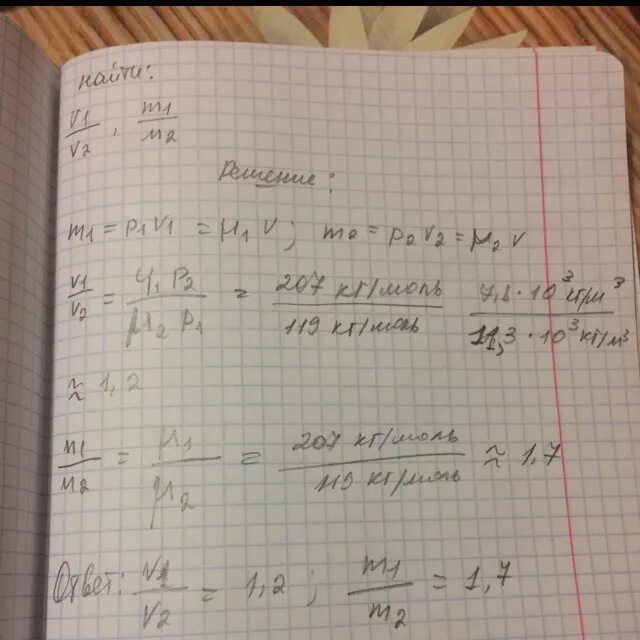 найти:
V1/V2, m1/м2
Решение:
m1 = ρ1V1 = μ1ν; m2 = ρ2V2 = μ2ν
V1/V2 = μ1 ρ2/μ2 ρ1 = 207 кг/моль/119 кг/моль 7,3·10³ кг/м³/11,3·10³ кг/м³
≈ 1,2
м1/м2 = μ1/μ2 = 207 кг/моль/119 кг/моль ≈ 1,7
Ответ: V1/V2 = 1,2; m1/m2 = 1,7